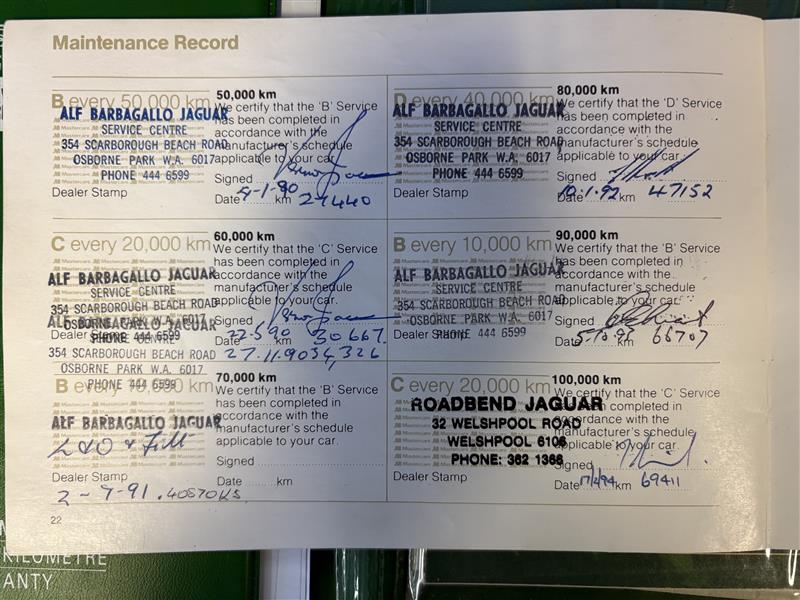 Maintenance Record
B every 50,000 km
50,000 km
We certify that the 'B' Service
has been completed in
accordance with the
manufacturer's schedule
applicable to your car.
ALF BARBAGALLO JAGUAR
SERVICE CENTRE
354 SCARBOROUGH BEACH ROAD
OSBORNE PARK W.A. 6017
PHONE 444 6599
Signed
Dealer Stamp
Date -1-90 km
C every 20,000 km
60,000 km
We certify that the 'C' Service
has been completed in
accordance with the
manufacturer's schedule
applicable to your car.
ALF BARBAGALLO JAGUAR
SERVICE CENTRE
354 SCARBOROUGH BEACH ROAD
OSBORNE PARK W.A. 6017
Signed
Dealer Stamp
Date 22.5.90 km 30667.
ALF BARBAGALLO JAGUAR
354 SCARBOROUGH BEACH ROAD
27.11.90 34,326
OSBORNE PARK W.A. 6017
PHONE 444 6599
B every 10,000 km
70,000 km
We certify that the 'B' Service
has been completed in
accordance with the
manufacturer's schedule
applicable to your car.
ALF BARBAGALLO JAGUAR
Signed
Dealer Stamp
Date km
2-9-91. 40870KS
22
D every 40,000 km
80,000 km
We certify that the 'D' Service
has been completed in
accordance with the
manufacturer's schedule
applicable to your car.
ALF BARBAGALLO JAGUAR
SERVICE CENTRE
354 SCARBOROUGH BEACH ROAD
OSBORNE PARK W.A. 6017
PHONE 444 6599
Signed
Dealer Stamp
Date 10.1.92 km 47152
B every 10,000 km
90,000 km
We certify that the 'B' Service
has been completed in
accordance with the
manufacturer's schedule
applicable to your car.
ALF BARBAGALLO JAGUAR
SERVICE CENTRE
354 SCARBOROUGH BEACH ROAD
OSBORNE PARK W.A. 6017
PHONE 444 6599
Signed
Dealer Stamp
Date km 66707
C every 20,000 km
100,000 km
We certify that the 'C' Service
has been completed in
accordance with the
manufacturer's schedule
applicable to your car.
ROADBEND JAGUAR
32 WELSHPOOL ROAD
WELSHPOOL 6106
PHONE: 362 1366
Signed
Dealer Stamp
Date 17/2/94 km 69411
KILOMETRE
ANTY